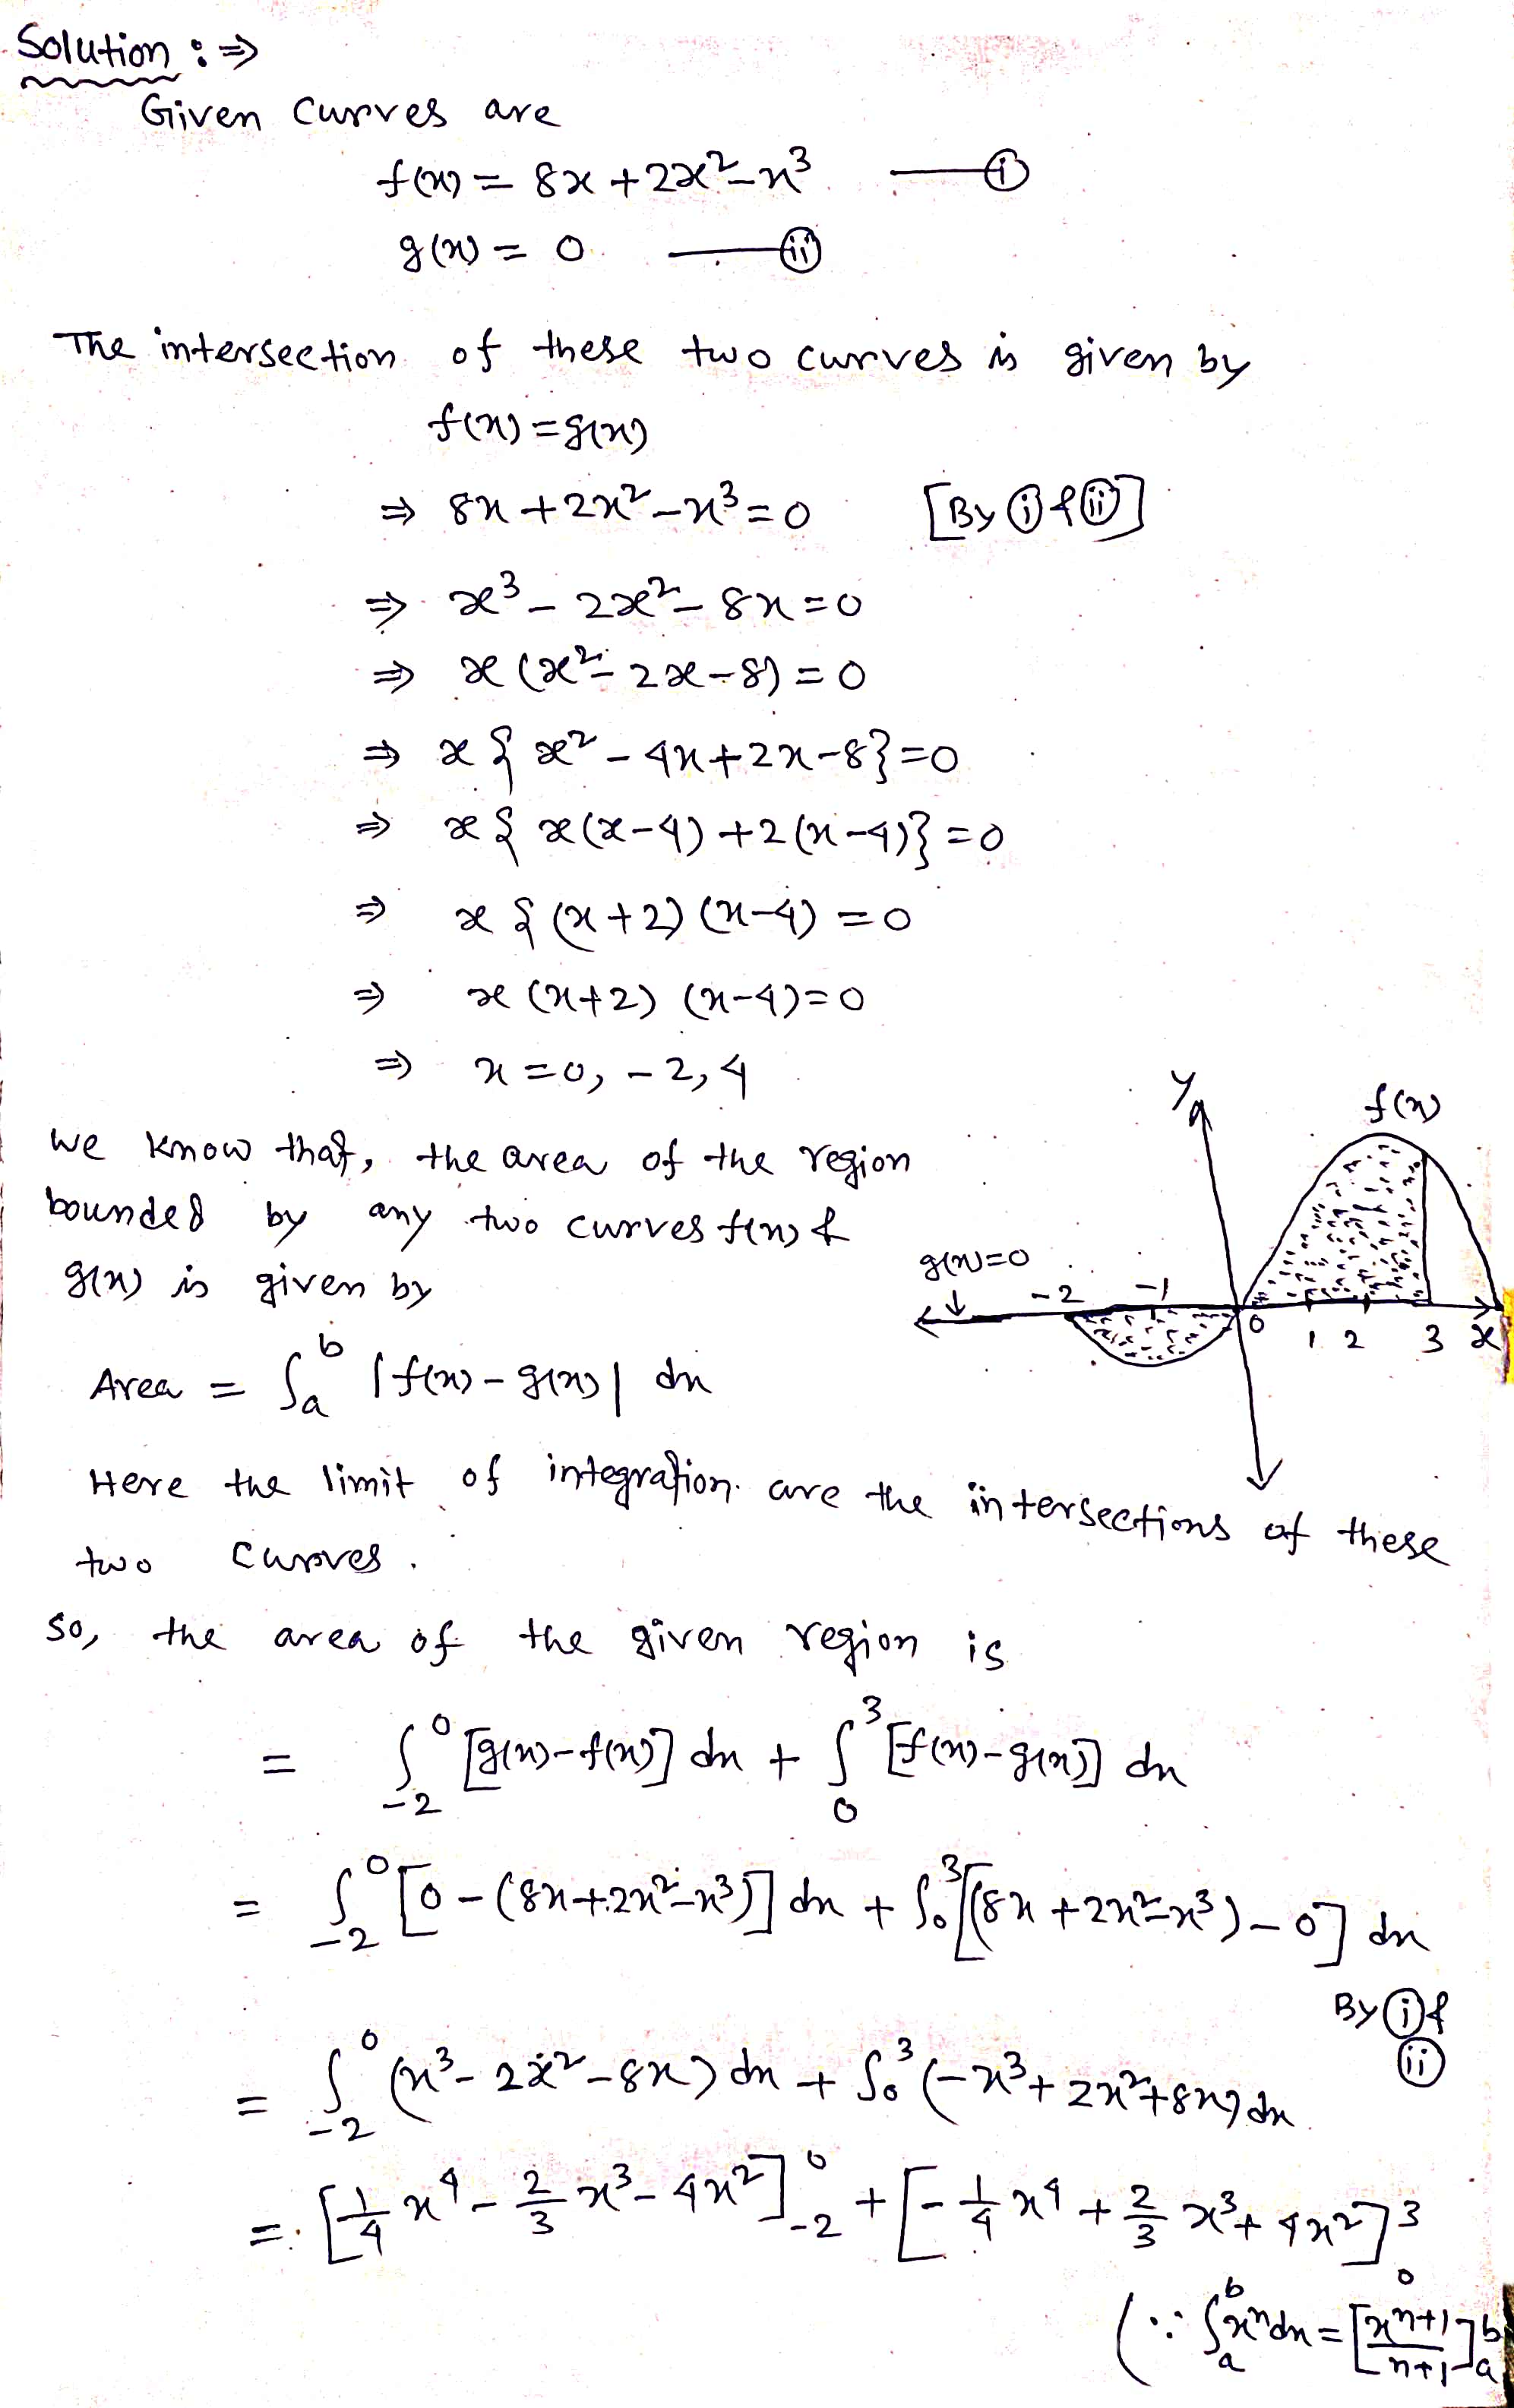 Solution :⇒
Given curves are
f(x) = 8x + 2x² - x³ —— (i)
g(x) = 0 —— (ii)
The intersection of these two curves is given by
f(x) = g(x)
⇒ 8x + 2x² - x³ = 0 [By (i) & (ii)]
⇒ x³ - 2x² - 8x = 0
⇒ x (x² - 2x - 8) = 0
⇒ x { x² - 4x + 2x - 8} = 0
⇒ x { x(x-4) + 2(x-4)} = 0
⇒ x { (x+2) (x-4) = 0
⇒ x (x+2) (x-4) = 0
⇒ x = 0, -2, 4
we know that, the area of the region
bounded by any two curves f(x) &
g(x) is given by
y
f(x)
g(x)=0
-2 -1 0 1 2 3 x
Area = ∫_a^b |f(x) - g(x)| dx
Here the limit of integration are the intersections of these
two curves.
so, the area of the given region is
= ∫_{-2}^0 [g(x) - f(x)] dx + ∫_0^3 [f(x) - g(x)] dx
= ∫_{-2}^0 [0 - (8x + 2x² - x³)] dx + ∫_0^3 [(8x + 2x² - x³) - 0] dx
By (i) &
(ii)
= ∫_{-2}^0 (x³ - 2x² - 8x) dx + ∫_0^3 (-x³ + 2x² + 8x) dx
= [1/4 x⁴ - 2/3 x³ - 4x²]_{-2}^0 + [- 1/4 x⁴ + 2/3 x³ + 4x²]_0^3
(∵ ∫_a^b xⁿ dx = [x^{n+1}/n+1]_a^b